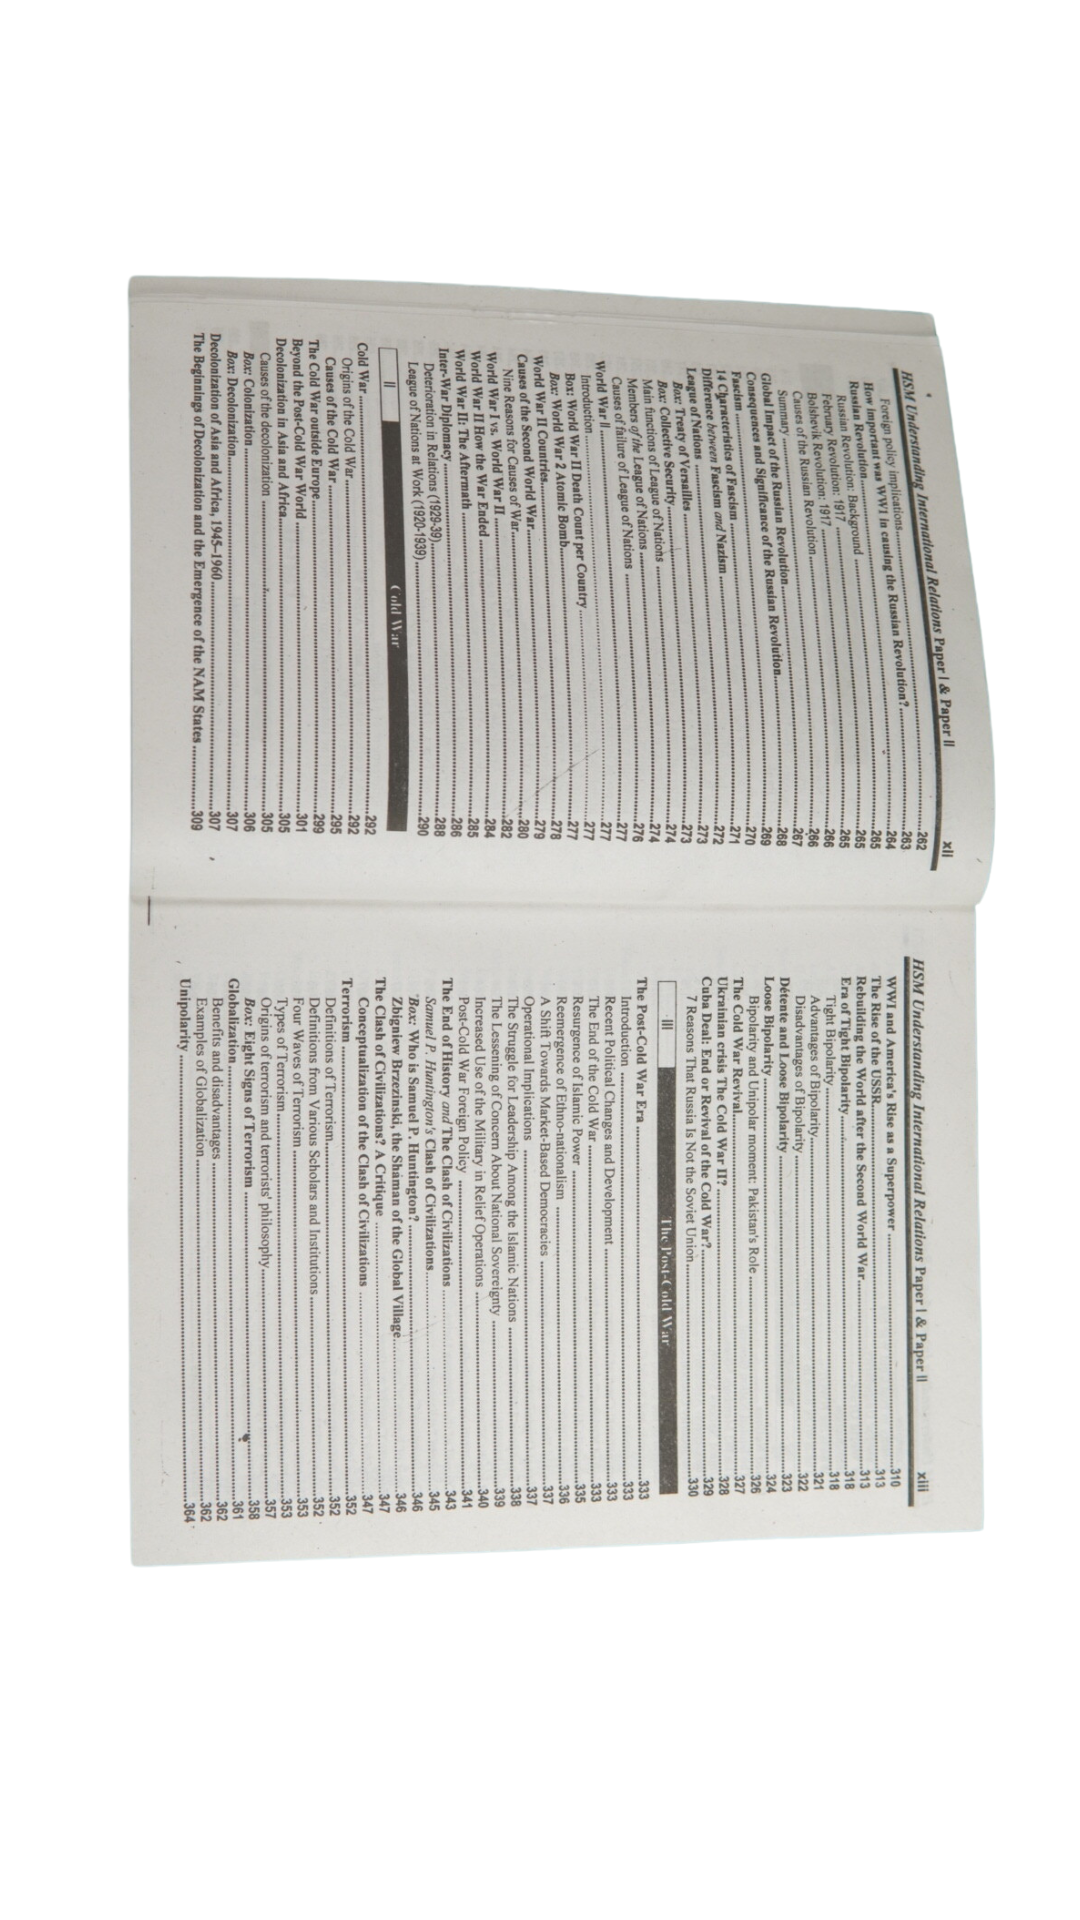 HSM Understanding International Relations Paper I & Paper II xii
Foreign policy implications 262
How important was WW1 in causing the Russian Revolution? 263
Russian Revolution 264
Russian Revolution: Background 265
Russian Revolution: 1917 265
February Revolution: 1917 265
Bolshevik Revolution: 1917 266
Causes of the Russian Revolution 266
Summary 267
Global Impact of the Russian Revolution 268
Consequences and Significance of the Russian Revolution 269
Fascism 270
14 Characteristics of Fascism 271
Difference between Fascism and Nazism 272
League of Nations 273
Box: Treaty of Versailles 273
Box: Collective Security 274
Main functions of League of Nations 274
Members of the League of Nations 276
Causes of failure of League of Nations 277
World War II 277
Introduction 277
Box: World War II Death Count per Country 277
Box: World War 2 Atomic Bomb 278
World War II Countries 279
Causes of the Second World War 280
Nine Reasons for Causes of War 282
World War I vs. World War II 284
World War II How the War Ended 285
World War II: The Aftermath 286
Inter-War Diplomacy 288
Deterioration in Relations (1929-39)
League of Nations at Work (1920-1939) 290
II Cold War
Cold War 292
Origins of the Cold War 292
Causes of the Cold War 295
The Cold War outside Europe 299
Beyond the Post-Cold War World 301
Decolonization in Asia and Africa 305
Causes of the decolonization 305
Box: Colonization 306
Box: Decolonization 307
Decolonization of Asia and Africa, 1945–1960 307
The Beginnings of Decolonization and the Emergence of the NAM States 309
HSM Understanding International Relations Paper I & Paper II xiii
WWI and America's Rise as a Superpower 310
The Rise of the USSR 313
Rebuilding the World after the Second World War 313
Era of Tight Bipolarity 318
Tight Bipolarity 318
Advantages of Bipolarity 321
Disadvantages of Bipolarity 322
Détente and Loose Bipolarity 323
Loose Bipolarity 324
Bipolarity and Unipolar moment: Pakistan's Role 326
The Cold War Revival 327
Ukrainian crisis The Cold War II? 328
Cuba Deal: End or Revival of the Cold War? 329
7 Reasons That Russia Is Not the Soviet Union 330
III The Post-Cold War
The Post-Cold War Era 333
Introduction 333
Recent Political Changes and Development 333
The End of the Cold War 333
Resurgence of Islamic Power 335
Reemergence of Ethno-nationalism 336
A Shift Towards Market-Based Democracies 337
Operational Implications 337
The Struggle for Leadership Among the Islamic Nations 338
The Lessening of Concern About National Sovereignty 339
Increased Use of the Military in Relief Operations 340
Post-Cold War Foreign Policy 341
The End of History and The Clash of Civilizations 343
Samuel P. Huntington's Clash of Civilizations 345
Box: Who is Samuel P. Huntington? 346
Zbigniew Brzezinski, the Shaman of the Global Village 346
The Clash of Civilizations? A Critique 347
Conceptualization of the Clash of Civilizations 347
Terrorism 352
Definitions of Terrorism 352
Definitions from Various Scholars and Institutions 352
Four Waves of Terrorism 353
Types of Terrorism 353
Origins of terrorism and terrorists' philosophy 357
Box: Eight Signs of Terrorism 358
Globalization 361
Benefits and disadvantages 362
Examples of Globalization 362
Unipolarity 364